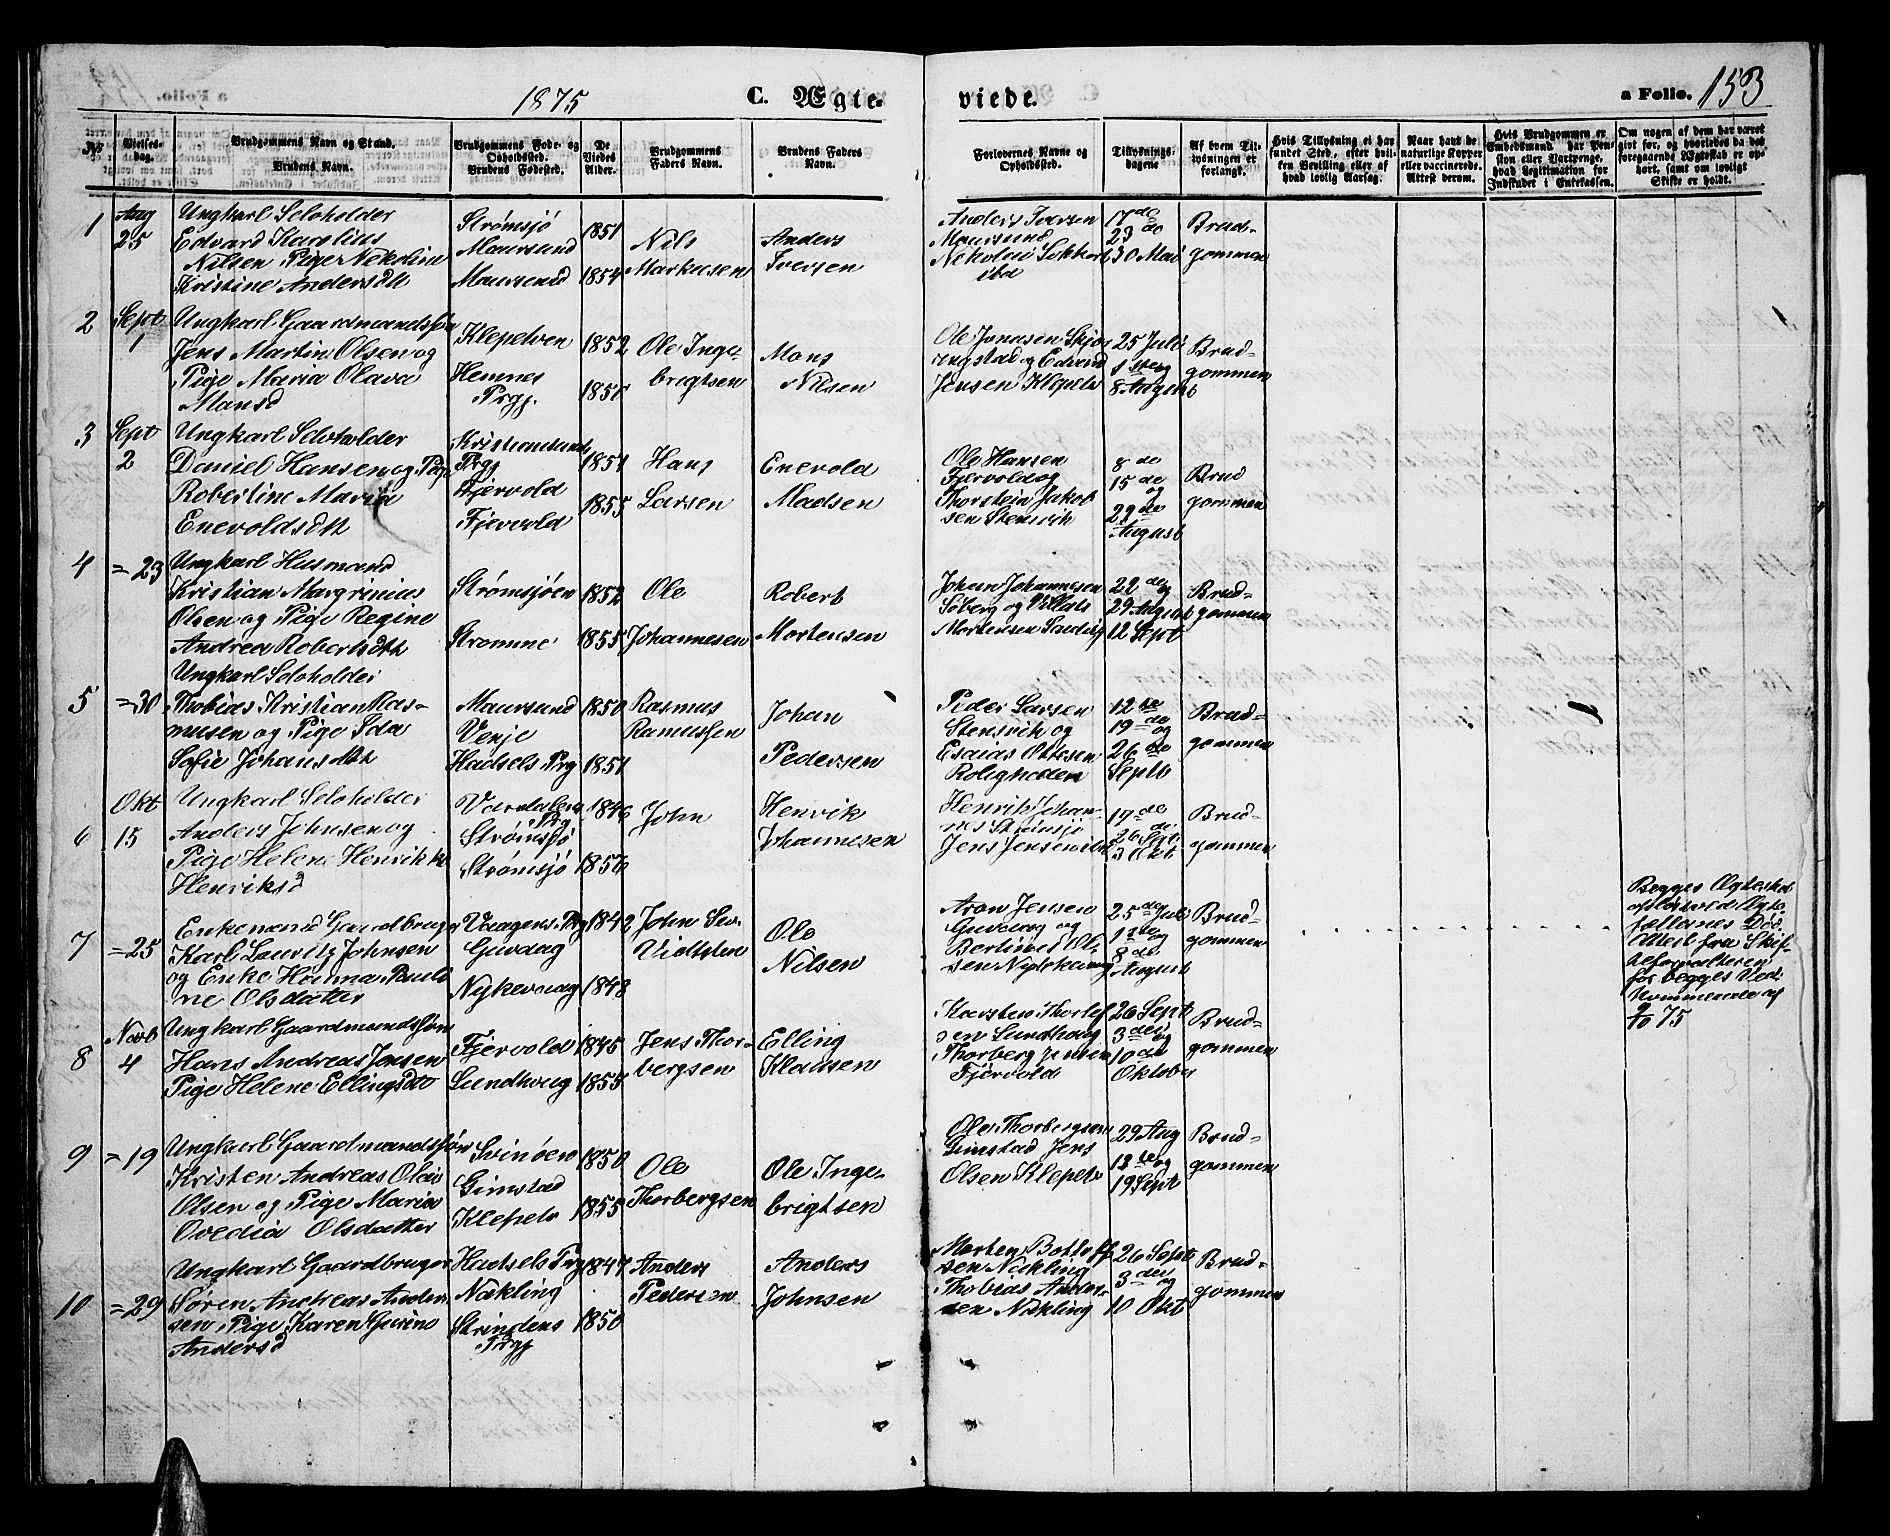 1875
C. Ægte-
viede.
a Folio. 153
№
Vielses-
dag.
Brudgommens Navn og Stand.
Brudens Navn.
Brudgommens Føde- og
Opholdssted.
Brudens Fødested.
De
Viedes
Alder.
Brudgommens
Faders Navn.
Brudens Faders
Navn.
Forlovernes Navne og
Opholdssted.
Tillysnings-
dagene
Af hvem Til-
lysningen er
forlangt.
Hvis Tillysning ei har
fundet Sted, efter hvil-
ken Bevilling eller af
hvad lovlig Aarsag.
Naar havt de
naturlige Kopper
eller vaccinerede.
Attest derom.
Hvis Brudgommen er
Embedsmand har Pen-
sion eller Vartpenge,
hvad Legitimation for
Indskudet i Enkekassen.
Om nogen af dem har været
givt før, og hvorledes da det
foregaaende Ægteskab er op-
hørt, samt om lovligt
Skifte er holdt.
1
Aug
25
Ungkarl Selvholder
Edvard Karelius
Nilsen Pige Nekoline
Kristine Andersdtt
Strømsjø
Maursund
Maursund
1851
1854
Nils
Markusen
Anders
Iversen
Anders Iversen
Maursund
Nikolai
ibd
17de
23de
30 Mai
Brud-
gommen
2
Sept
1
Ungkarl Gaardmandssøn
Jens Martin Olsen og
Pige Maria Olava
Mansd
Klepelven
Hemnes
Prgj.
1852
1850
Ole Inge-
brigtsen
Mons
Nilsen
Ole Jonasen Skjo-
ringstad og Edvard
Jensen Klepelv
25 Juli
1ste og
8 August
Brud-
gommen
3
Sept
2
Ungkarl Selvholder
Daniel Hansen og Pige
Robertine Maria
Enevoldsdtt
Kristiansund
Prgj
Fjervold
Fjervold
1851
1855
Hans
Larsen
Enevold
Madsen
Ole Hansen
Fjervold og
Thorstein Jakob
sen Stensvik
8de
15de
og
29de
August
Brud
gommen
4
= 23
Ungkarl Husmand
Kristian Margrinius
Olsen og Pige Regine
Andrea Robertsdtt
Strømsjøen
Strømme
1852
1855
Ole
Johannesen
Robert
Mortensen
Johan Johannesen
Søberg og
Mortensen
22de og
29 August
12 Sept
Brud-
gommen
5
= 30
Ungkarl Selvholder
Thobias Kristian Ras-
musen og Pige Ida
Sofie Johansdtt
Maursund
Venje
Hadsels Prg
1850
1851
Rasmus
Rasmussen
Johan
Pedersen
Peder Larsen
Stensvik og
Esaias Ottesen
Roligheden
12te
19de og
26de
Septb
Brud-
gommen
6
Okt
15
Ungkarl Selvholder
Anders Johnsen og
Pige Helene Henrikke
Henriksd
Værdalens
Prg
Strømsjø
Strømsjø
1846
1856
John
Henrik
Johannesen
Henrik Johan-
nes Strømsjø
Jens Jensen ibd
19de
26 Sept
3 Okt
Brud-
gommen
7
= 25
Enkemand Gaardbruger
Karl Lauritz Johnsen
og Enke Hanna Pauli
ne Olsdatter
Vaagens Prg
Guvaag
Nykvaag
1842
1848
John
Ole
Nilsen
Aron Jensen
Guvaag og
Bertinus Ol-
sen Nykvaag
25de Juli
1ste og
8de
August
Brud-
gommen
Begges Ægtesk.
opløst ved Ægte-
fællernes Død.
Attest fra Skif-
teforvalteren
for begges Ved-
kommende af
9/10 75
8
Novb
4
Ungkarl Gaardmandssøn
Hans Andreas Jensen
Pige Helene Ellingsdtt
Fjervold
Lundhaug
1845
1855
Jens Thor-
bergsen
Elling
Klausen
Karsten Thorlef
sen Lundhaug
Thorberg Jensen
Fjervold
26 Sept
3de og
10de
Oktober
Brud-
gommen
9
= 19
Ungkarl Gaardmandssøn
Kristen Andreas Olai
Olsen og Pige Maria
Ovedia Olsdatter
Svinøen
Gimstad
Klepelv
1850
1855
Ole
Thorbergsen
Ole Inge-
brigtsen
Ole Thorbergsen
Gimstad Jens
Olsen Klepelv
29 Aug
12te og
19 Sept
Brud-
gommen
10
= 29
Ungkarl Gaardbruger
Søren Andreas Ander
sen, Pige Karen
Andersd
Hadsels Prg
Nækling
Strindens
Prgj
1847
1850
Anders
Pedersen
Anders
Johnsen
Morten
sen Nækling
Thobias Ander-
sen Nækling
26 Sept
3de og
10 Okt
Brud-
gommen